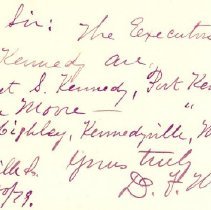 Sir: The Executors
Kennedy are,
t S. Kennedy, Port Ken
Moore — "
Highley, Kennedyville, M
Yours truly
ville
D. F. H
/79.